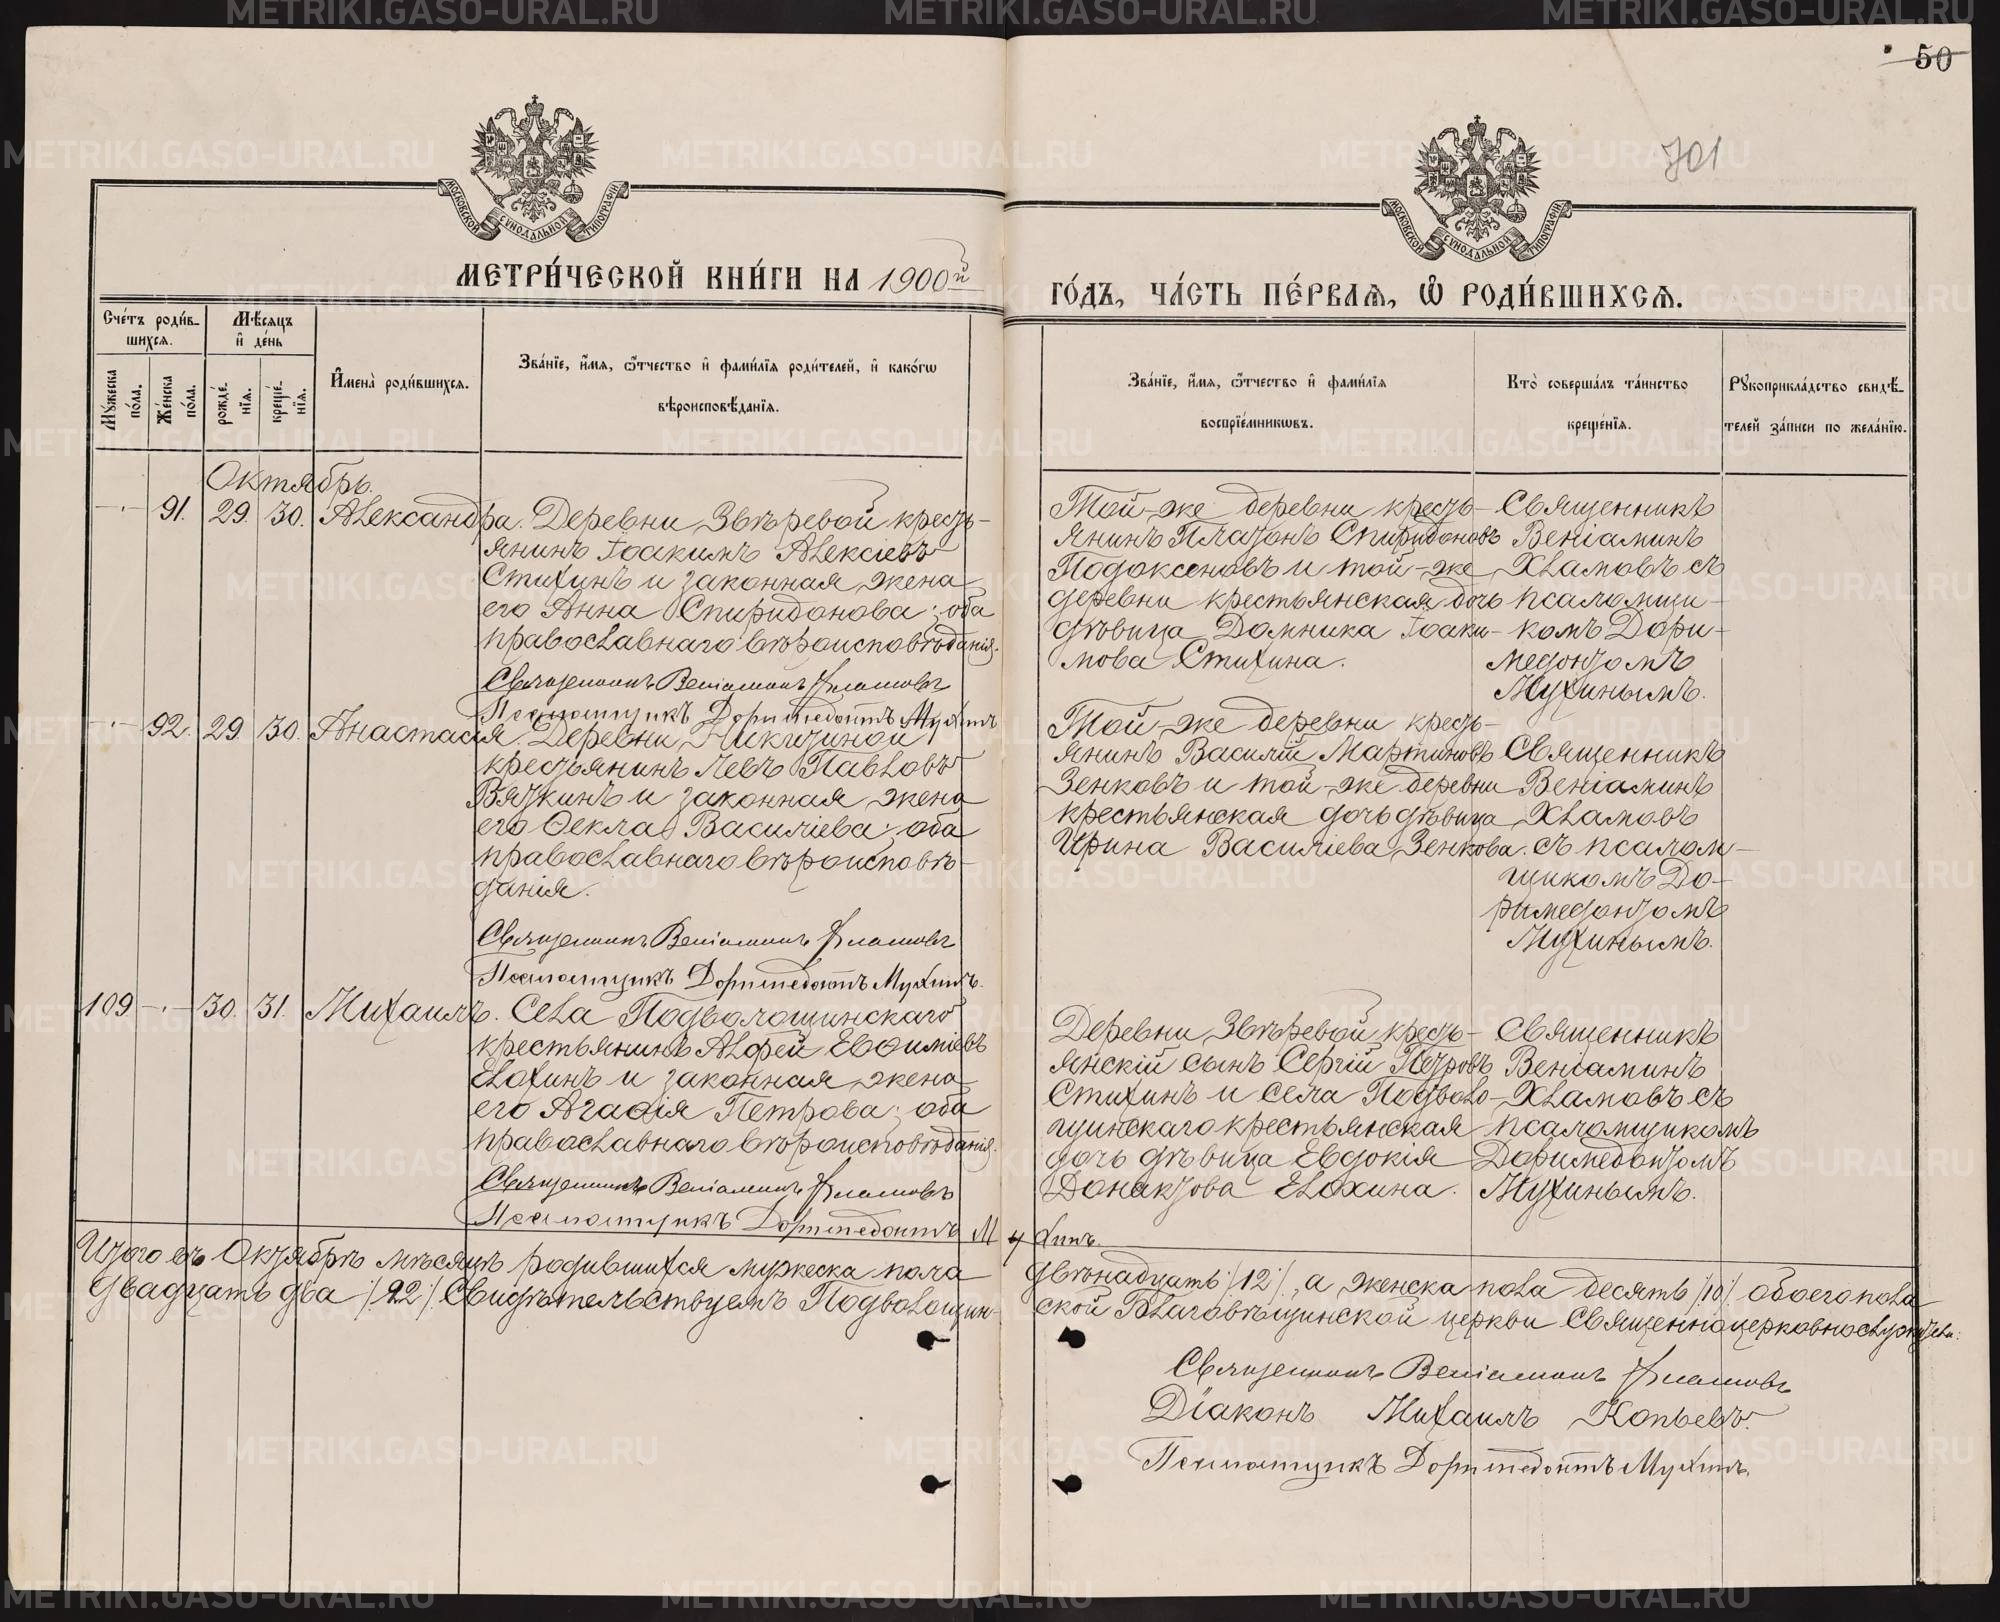 50
701
МОСКОВСКОЙ СѴНОДАЛЬНОЙ ТИПОГРАФІИ
МОСКОВСКОЙ СѴНОДАЛЬНОЙ ТИПОГРАФІИ
МЕТРИ́ЧЕСКОЙ КНИ́ГИ НА 1900й
ГО́ДЪ, ЧА́СТЬ ПЕ́РВАѦ, Ѿ РОДИ́ВШИХСѦ.
Сче́тъ роди́в-
шихсѧ.
Мѣ́сѧцъ
и҆ де́нь
Мꙋ́жеска по́ла.
Же́нска по́ла.
рожде́нїѧ.
креще́нїѧ.
И҆мена̀ роди́вшихсѧ.
Зва́нїе, и҆́мѧ, ѻ҆́тчество и҆ фами́лїѧ роди́телей, и҆ како́гѡ
вѣроисповѣ́данїѧ.
Зва́нїе, и҆́мѧ, ѻ҆́тчество и҆ фами́лїѧ
воспрїе́мникѡвъ.
Кто̀ соверша́лъ та́инство
креще́нїѧ.
Рꙋкоприкла́дство свидѣ́-
телей за́писи по жела́нїю.
Октябрь.
91. 29. 30. Александра. Деревни Звѣревой кресть-
янинъ Іоакимъ Алексіевъ
Стихинъ и законная жена
его Анна Спиридонова; оба
православнаго вѣроисповѣданія.
Священникъ Веніаминъ Хламовъ
Псаломщикъ Доримедонтъ Мухинъ
Той-же деревни кресть-
янинъ Платонъ Спиридоновъ
Подоксеновъ и той-же
деревни крестьянская дочь
дѣвица Домника Іоаки-
мова Стихина.
Священникъ
Веніаминъ
Хламовъ съ
псаломщи-
комъ Дори-
медонтомъ
Мухинымъ.
92. 29. 30. Анастасія. Деревни Никитиной
крестьянинъ Левъ Павловъ
Вяткинъ и законная жена
его Ѳекла Василіева; оба
православнаго вѣроисповѣ-
данія.
Священникъ Веніаминъ Хламовъ
Псаломщикъ Доримедонтъ Мухинъ.
Той-же деревни кресть-
янинъ Василій Мартиновъ
Зенковъ и той-же деревни
крестьянская дочь дѣвица
Ирина Василіева Зенкова.
Священникъ
Веніаминъ
Хламовъ
съ псалом-
щикомъ До-
римедонтомъ
Мухинымъ.
109 30. 31. Михаилъ. Села Подволошинскаго
крестьянинъ Алфей Евѳиміевъ
Елохинъ и законная жена
его Агаѳія Петрова; оба
православнаго вѣроисповѣданія.
Священникъ Веніаминъ Хламовъ
Псаломщикъ Доримедонтъ Мухинъ.
Деревни Звѣревой кресть-
янскій сынъ Сергій Петровъ
Стихинъ и села Подволо-
щинскаго крестьянская
дочь дѣвица Евдокія
Донактова Елохина.
Священникъ
Веніаминъ
Хламовъ съ
псаломщикомъ
Доримедонтомъ
Мухинымъ.
Итого въ Октябрѣ мѣсяцѣ родившихся мужеска пола двѣнадцать /12/, а женска пола десять /10/ обоего пола
двадцать два /22/ Свидѣтельствуемъ Подволощин-ской Благовѣщинской церкви Священноцерковнослужители:
Священникъ Веніаминъ Хламовъ
Діаконъ Михаилъ Копьевъ.
Псаломщикъ Доримедонтъ Мухинъ.
METRIKI.GASO-URAL.RU